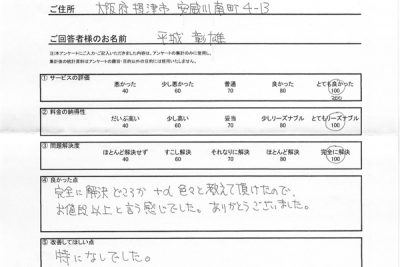 ご住所 大阪府摂津市 安威川南町4-13
ご回答者様のお名前 平城 彰雄
① サービスの評価 悪かった 少し悪かった 普通 良かった とても良かった
40 60 70 80 100
② 料金の納得性 だいぶ高い 少し高い 妥当 少しリーズナブル とてもリーズナブル
40 60 70 80 100
③ 問題解決度 ほとんど解決せず すこし解決 それなりに解決 ほとんど解決 完全に解決
40 60 70 80 100
④ 良かった点
完全に解決どころか +α 色々と教えて頂けたので、
お値段以上と言う感じでした。ありがとうございました。
⑤ 改善してほしい点
特になしでした。